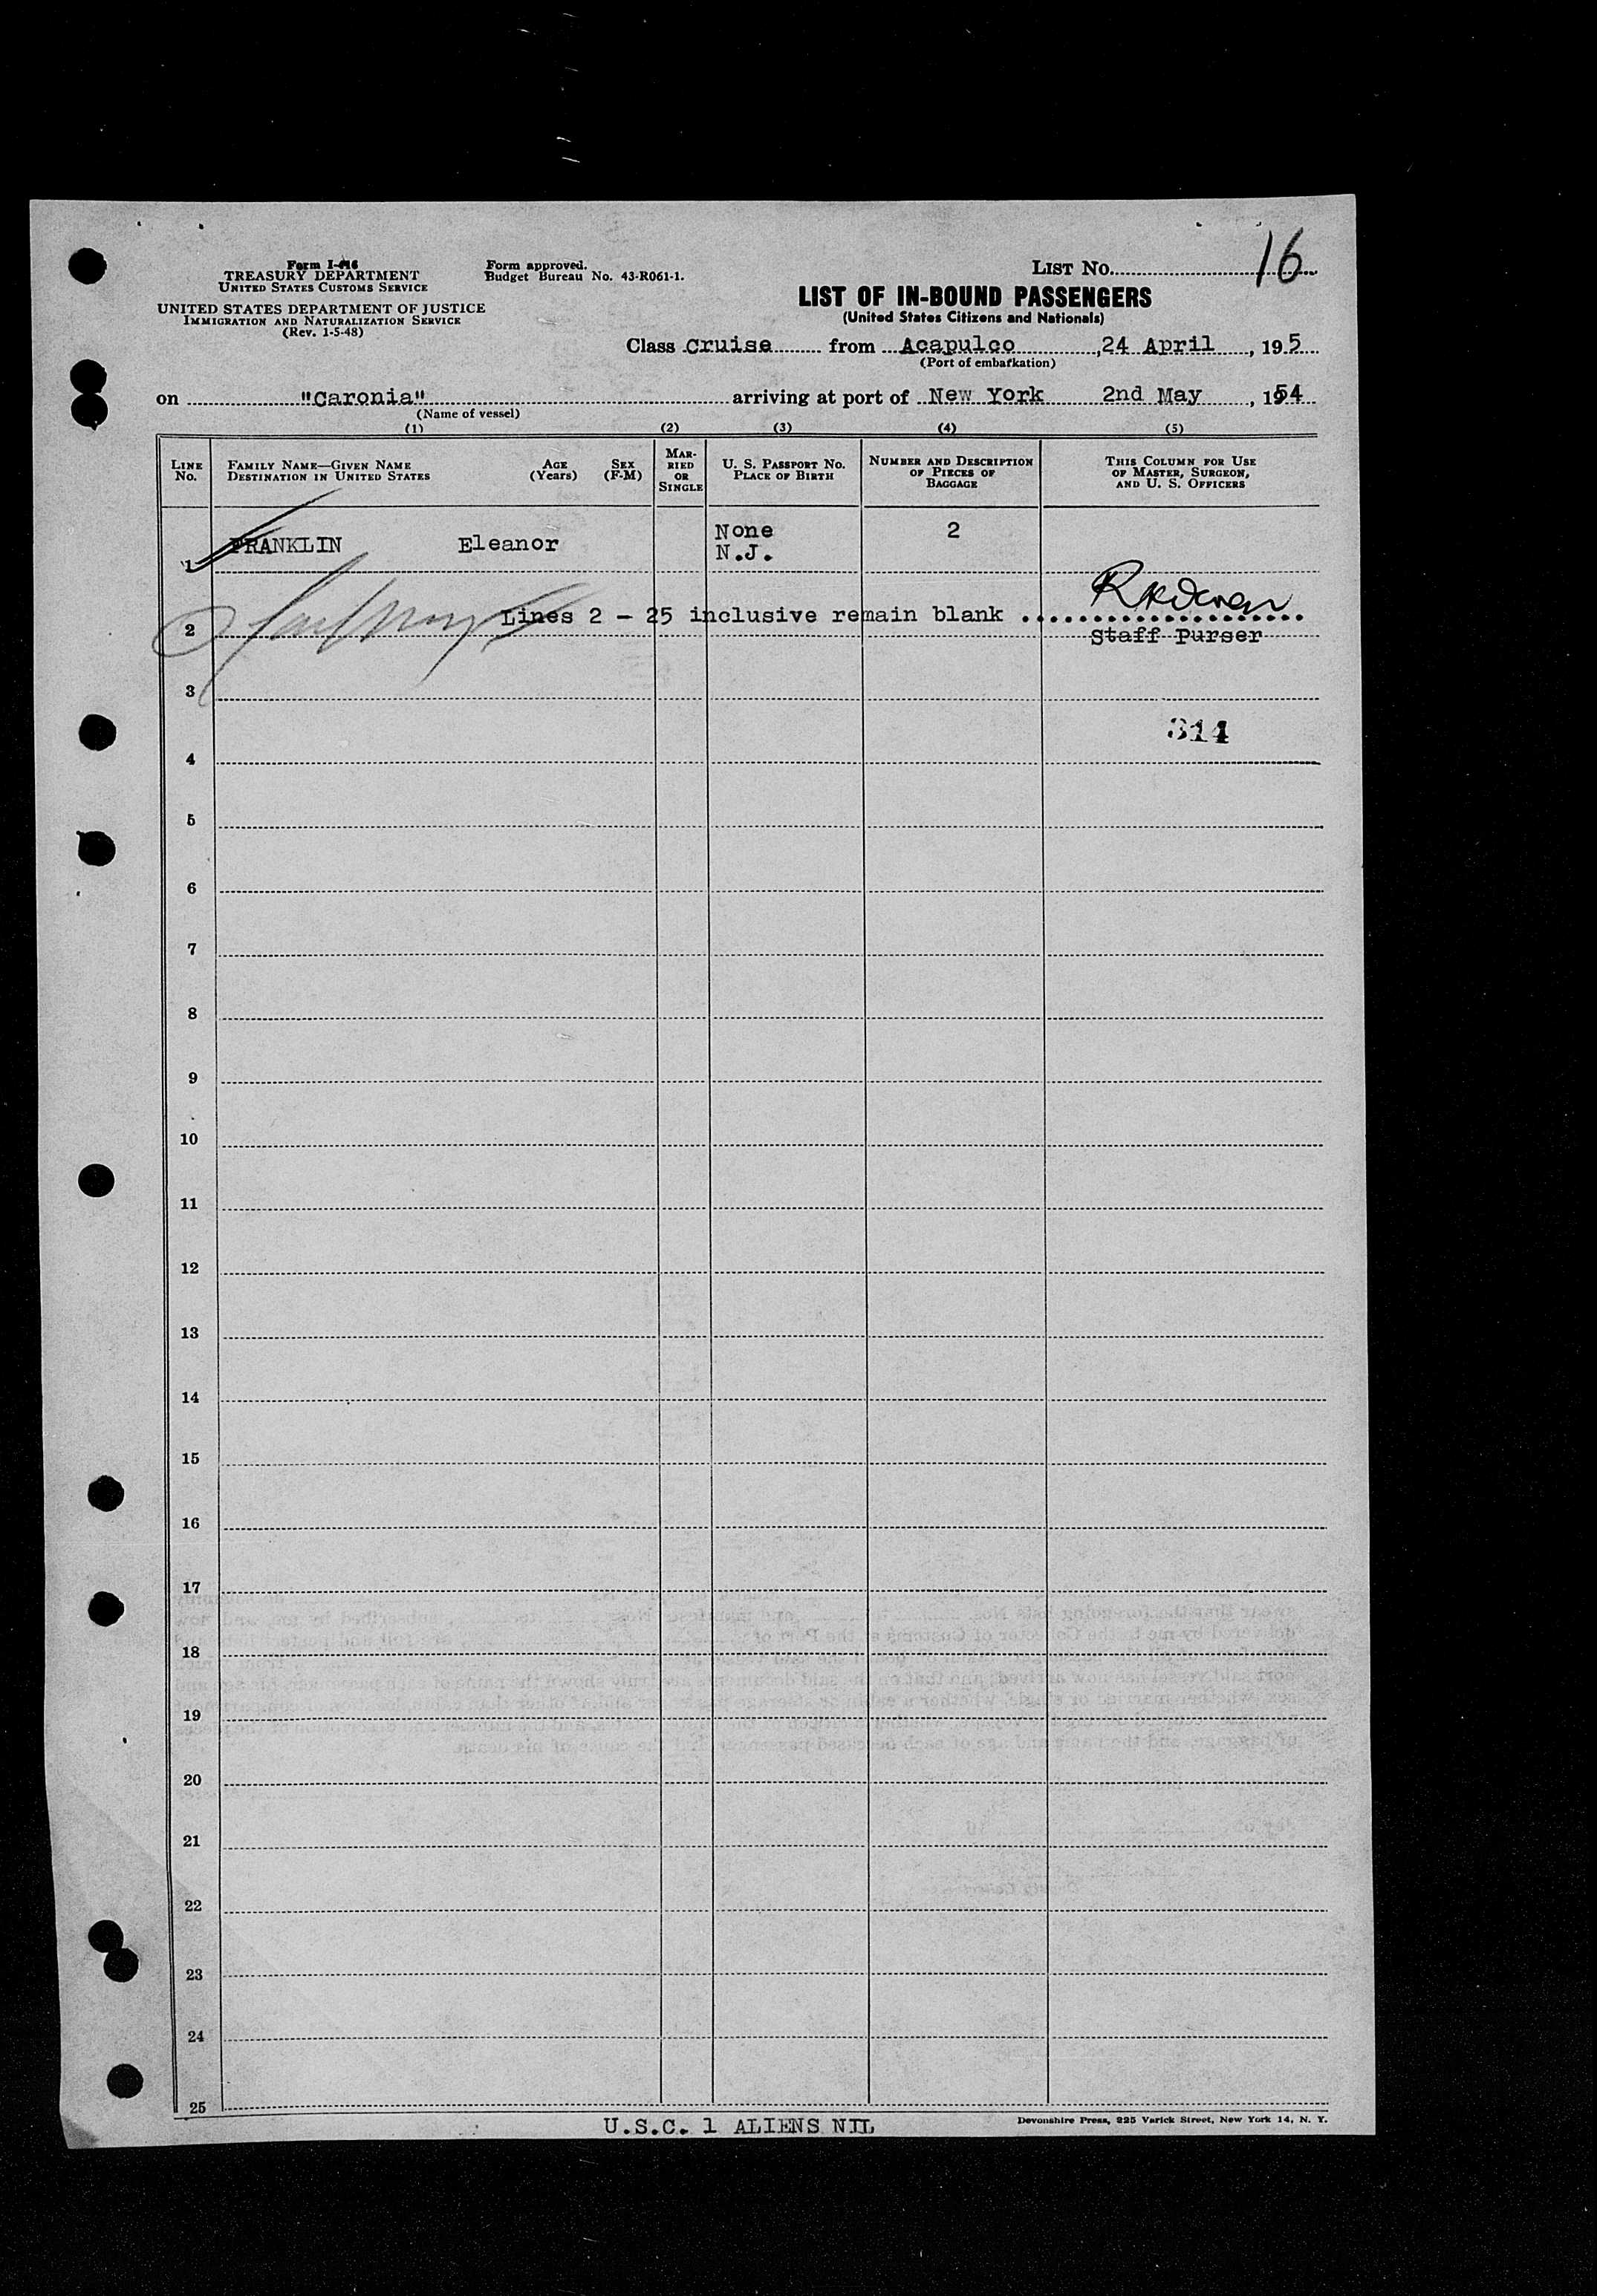 LIST No. 16
Form I-416
TREASURY DEPARTMENT
UNITED STATES CUSTOMS SERVICE
UNITED STATES DEPARTMENT OF JUSTICE
IMMIGRATION AND NATURALIZATION SERVICE
(Rev. 1-5-48)
Form approved.
Budget Bureau No. 43-R061-1.
LIST OF IN-BOUND PASSENGERS
(United States Citizens and Nationals)
Class Cruise from Acapulco, 24 April, 195
(Port of embarkation)
on "Caronia" arriving at port of New York 2nd May, 1954
(Name of vessel)
(1) (2) (3) (4) (5)
LINE No.
FAMILY NAME—GIVEN NAME
DESTINATION IN UNITED STATES
AGE (Years)
SEX (F-M)
MARRIED OR SINGLE
U. S. PASSPORT No.
PLACE OF BIRTH
NUMBER AND DESCRIPTION
OF PIECES OF
BAGGAGE
THIS COLUMN FOR USE
OF MASTER, SURGEON,
AND U. S. OFFICERS
1 FRANKLIN Eleanor None 2
N.J.
2 Lines 2 - 25 inclusive remain blank
Staff Purser
3
314
4
5
6
7
8
9
10
11
12
13
14
15
16
17
18
19
20
21
22
23
24
25
U.S.C. 1 ALIENS NIL
Devonshire Press, 225 Varick Street, New York 14, N. Y.